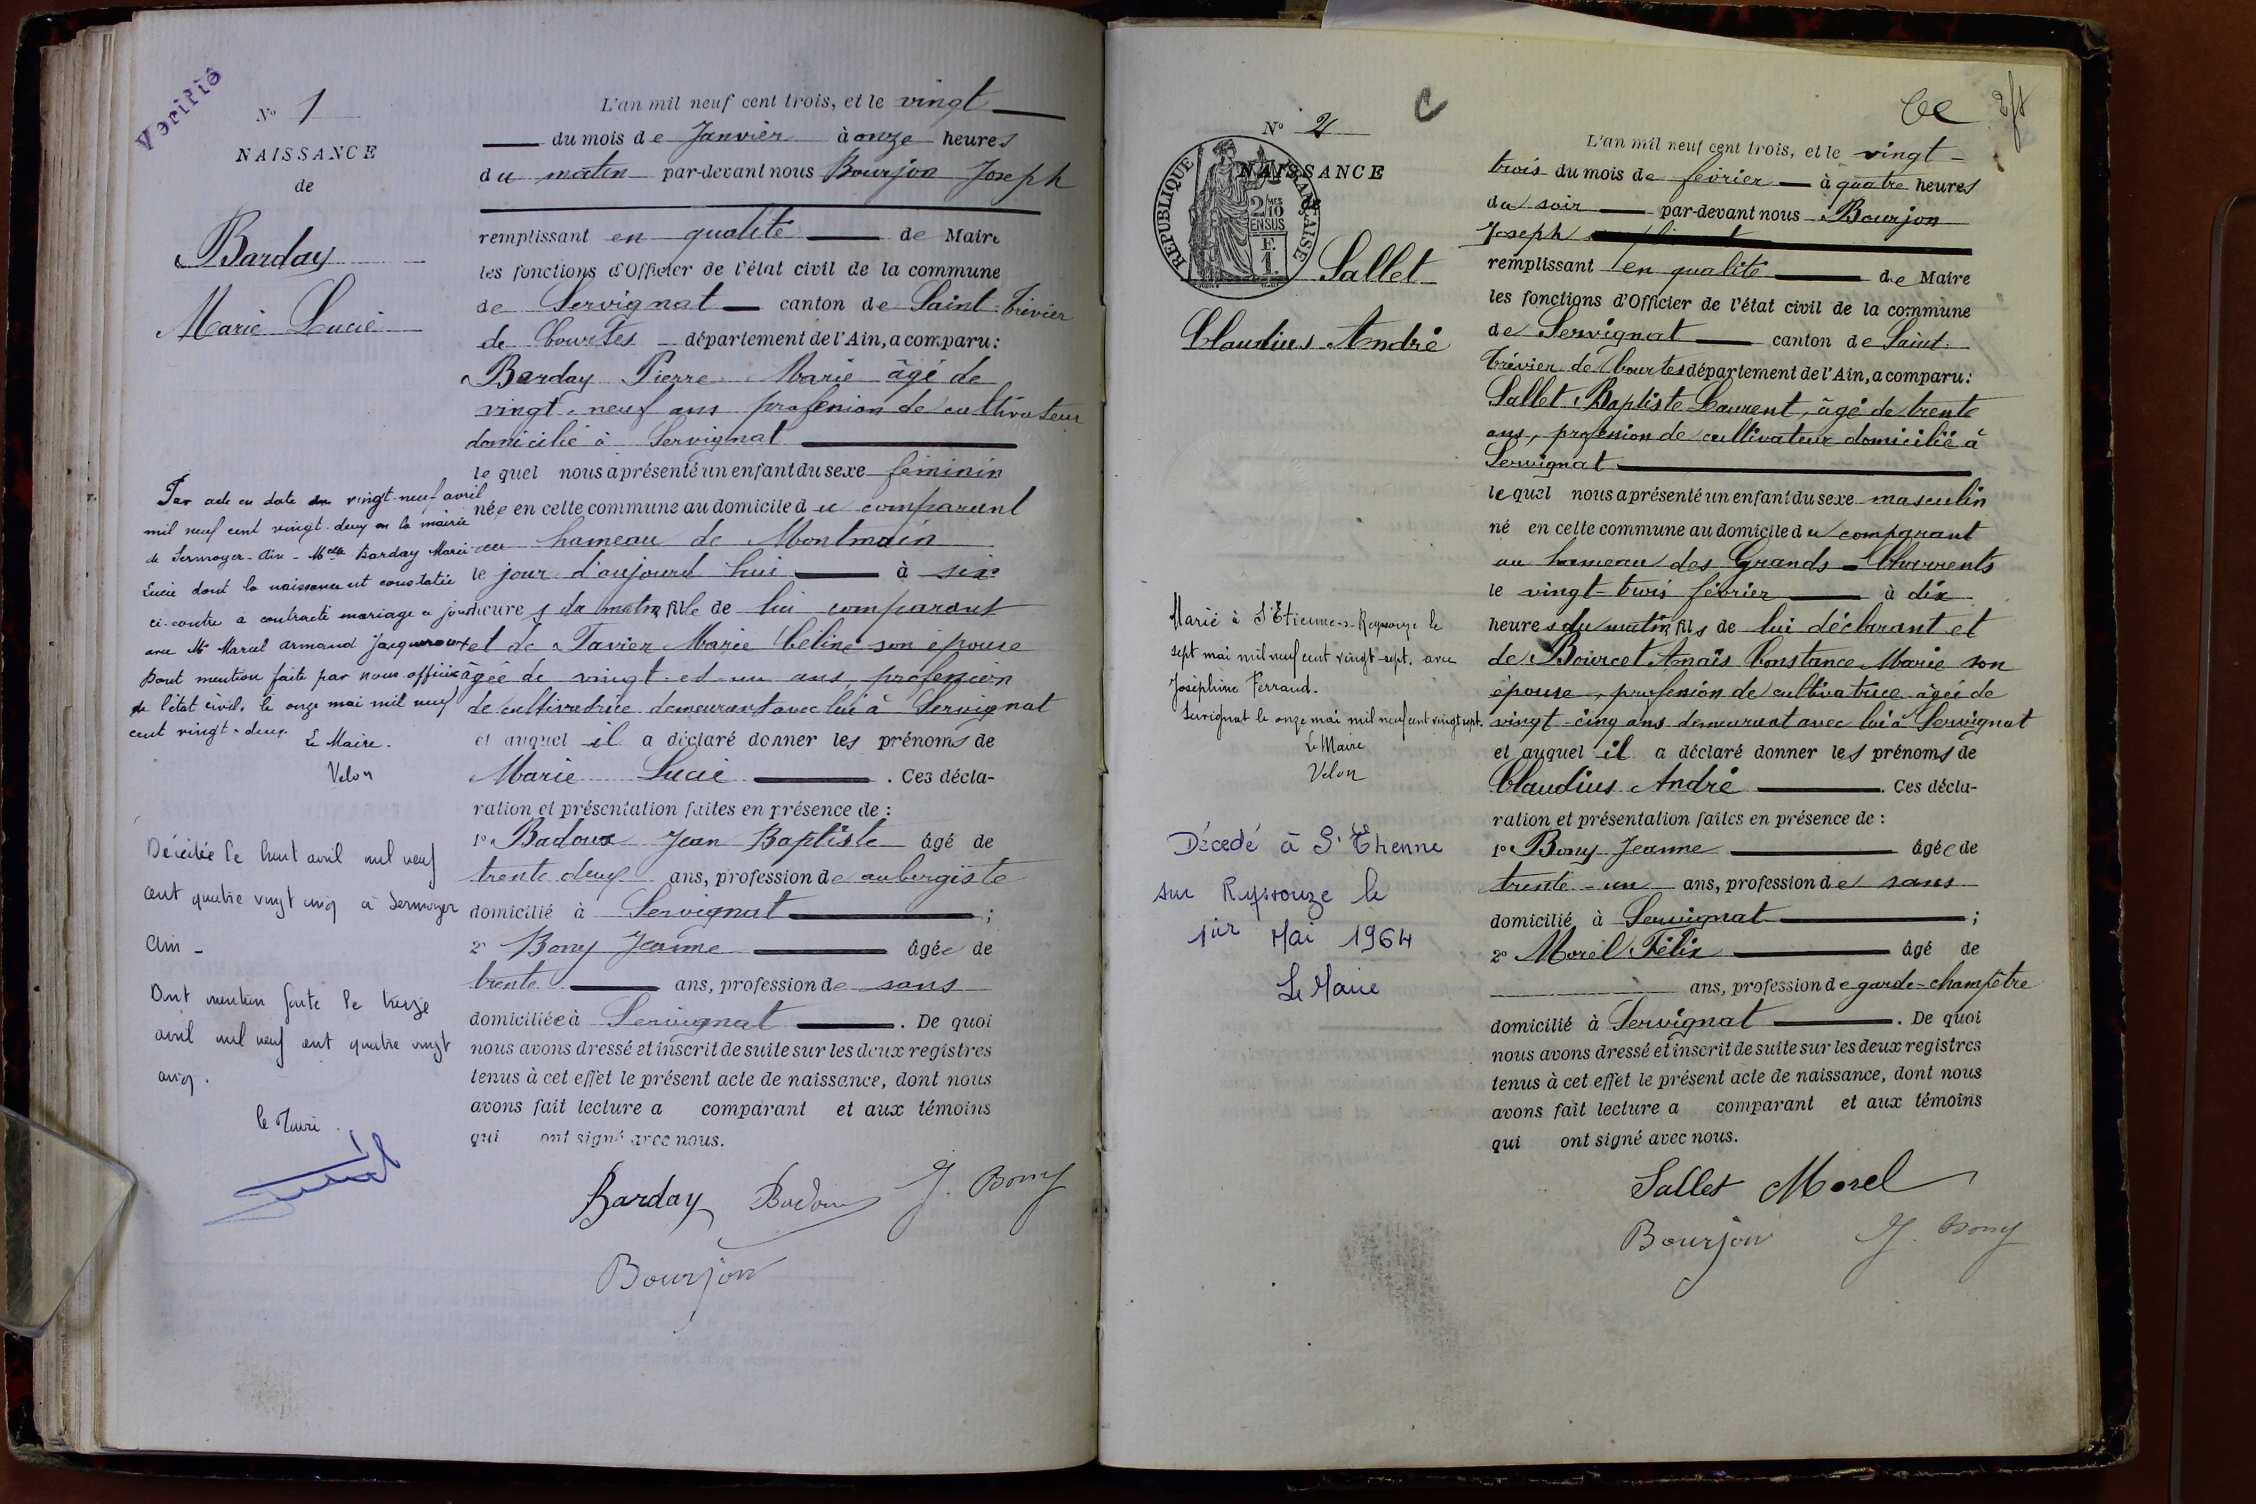 Verifié
N° 1
NAISSANCE
de
Barday
Marie Lucie
L'an mil neuf cent trois, et le vingt
du mois de Janvier à onze heures
du matin par-devant nous Bourjon Joseph
remplissant en qualité de Maire
les fonctions d'Officier de l'état civil de la commune
de Servignat canton de Saint-Trivier
de Courtes département de l'Ain, a comparu:
Barday Pierre Marie âgé de
vingt-neuf ans profession de cultivateur
domicilié à Servignat
le quel nous a présenté un enfant du sexe féminin
née en cette commune au domicile du comparant
au hameau de Montmain
le jour d'aujourd'hui à six
heures du matin fille de lui comparant
et de Tavier Marie Céline son épouse
âgée de vingt-et-un ans profession
de cultivatrice demeurant avec lui à Servignat
et auquel il a déclaré donner les prénoms de
Marie Lucie . Ces décla-
ration et présentation faites en présence de :
1° Badoux Jean Baptiste âgé de
trente deux ans, profession de aubergiste
domicilié à Servignat ;
2° Bony Jeanne âgée de
trente ans, profession de sans
domiciliée à Servignat . De quoi
nous avons dressé et inscrit de suite sur les deux registres
tenus à cet effet le présent acte de naissance, dont nous
avons fait lecture a comparant et aux témoins
qui ont signé avec nous.
Barday Badoux J. Bony
Bourjon
Par acte en date du vingt-neuf avril
mil neuf cent vingt-deux en la mairie
de Sermoyer-Ain - Melle Barday Marie
Lucie dont la naissance est constatée
ci-contre a contracté mariage ce jour
avec Mr Marcel Armand
Dont mention faite par nous officier
de l'état civil, le onze mai mil neuf
cent vingt-deux.
Le Maire.
Velon
Décédée le huit avril mil neuf
cent quatre vingt cinq à Sermoyer
Ain -
Dont mention faite le treize
avril mil neuf cent quatre vingt
cinq.
le Maire
C
N° 2
NAISSANCE
de
REPUBLIQUE FRANÇAISE
2/10 EN SUS
F.
1.
Sallet
Claudius André
L'an mil neuf cent trois, et le vingt-
trois du mois de février à quatre heures
du soir par-devant nous Bourjon
Joseph
remplissant en qualité de Maire
les fonctions d'Officier de l'état civil de la commune
de Servignat canton de Saint-
Trivier de Courtes département de l'Ain, a comparu:
Sallet Baptiste Laurent, âgé de trente
ans, profession de cultivateur domicilié à
Servignat
le quel nous a présenté un enfant du sexe masculin
né en cette commune au domicile du comparant
au hameau des Grands-Charrents
le vingt-trois février à dix
heures du matin fils de lui déclarant et
de Bourcet Anaïs Constance Marie son
épouse, profession de cultivatrice âgée de
vingt-cinq ans demeurant avec lui à Servignat
et auquel il a déclaré donner les prénoms de
Claudius André . Ces décla-
ration et présentation faites en présence de :
1° Bony Jeanne âgée de
trente-un ans, profession de sans
domicilié à Servignat ;
2° Morel Félix âgé de
ans, profession de garde-champêtre
domicilié à Servignat . De quoi
nous avons dressé et inscrit de suite sur les deux registres
tenus à cet effet le présent acte de naissance, dont nous
avons fait lecture a comparant et aux témoins
qui ont signé avec nous.
Sallet Morel
Bourjon J. Bony
Marié à St Etienne-s-Reyssouze le
sept mai mil neuf cent vingt-sept, avec
Joséphine Ferraud.
Servignat le onze mai mil neuf cent vingt sept.
Le Maire
Velon
Décedé à St Etienne
sur Reyssouze le
1ier Mai 1964
Le Maire